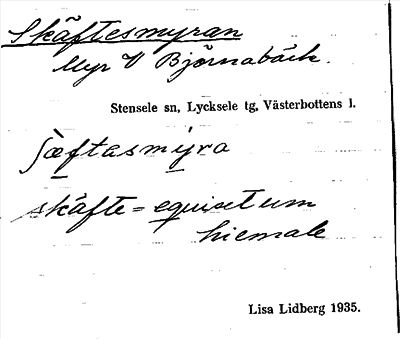 Skäftesmyran
Myr V Björnabäck.
Stensele sn, Lycksele tg, Västerbottens l.
ʃæftasmyra
skäfte = equisetum
hiemale
Lisa Lidberg 1935.